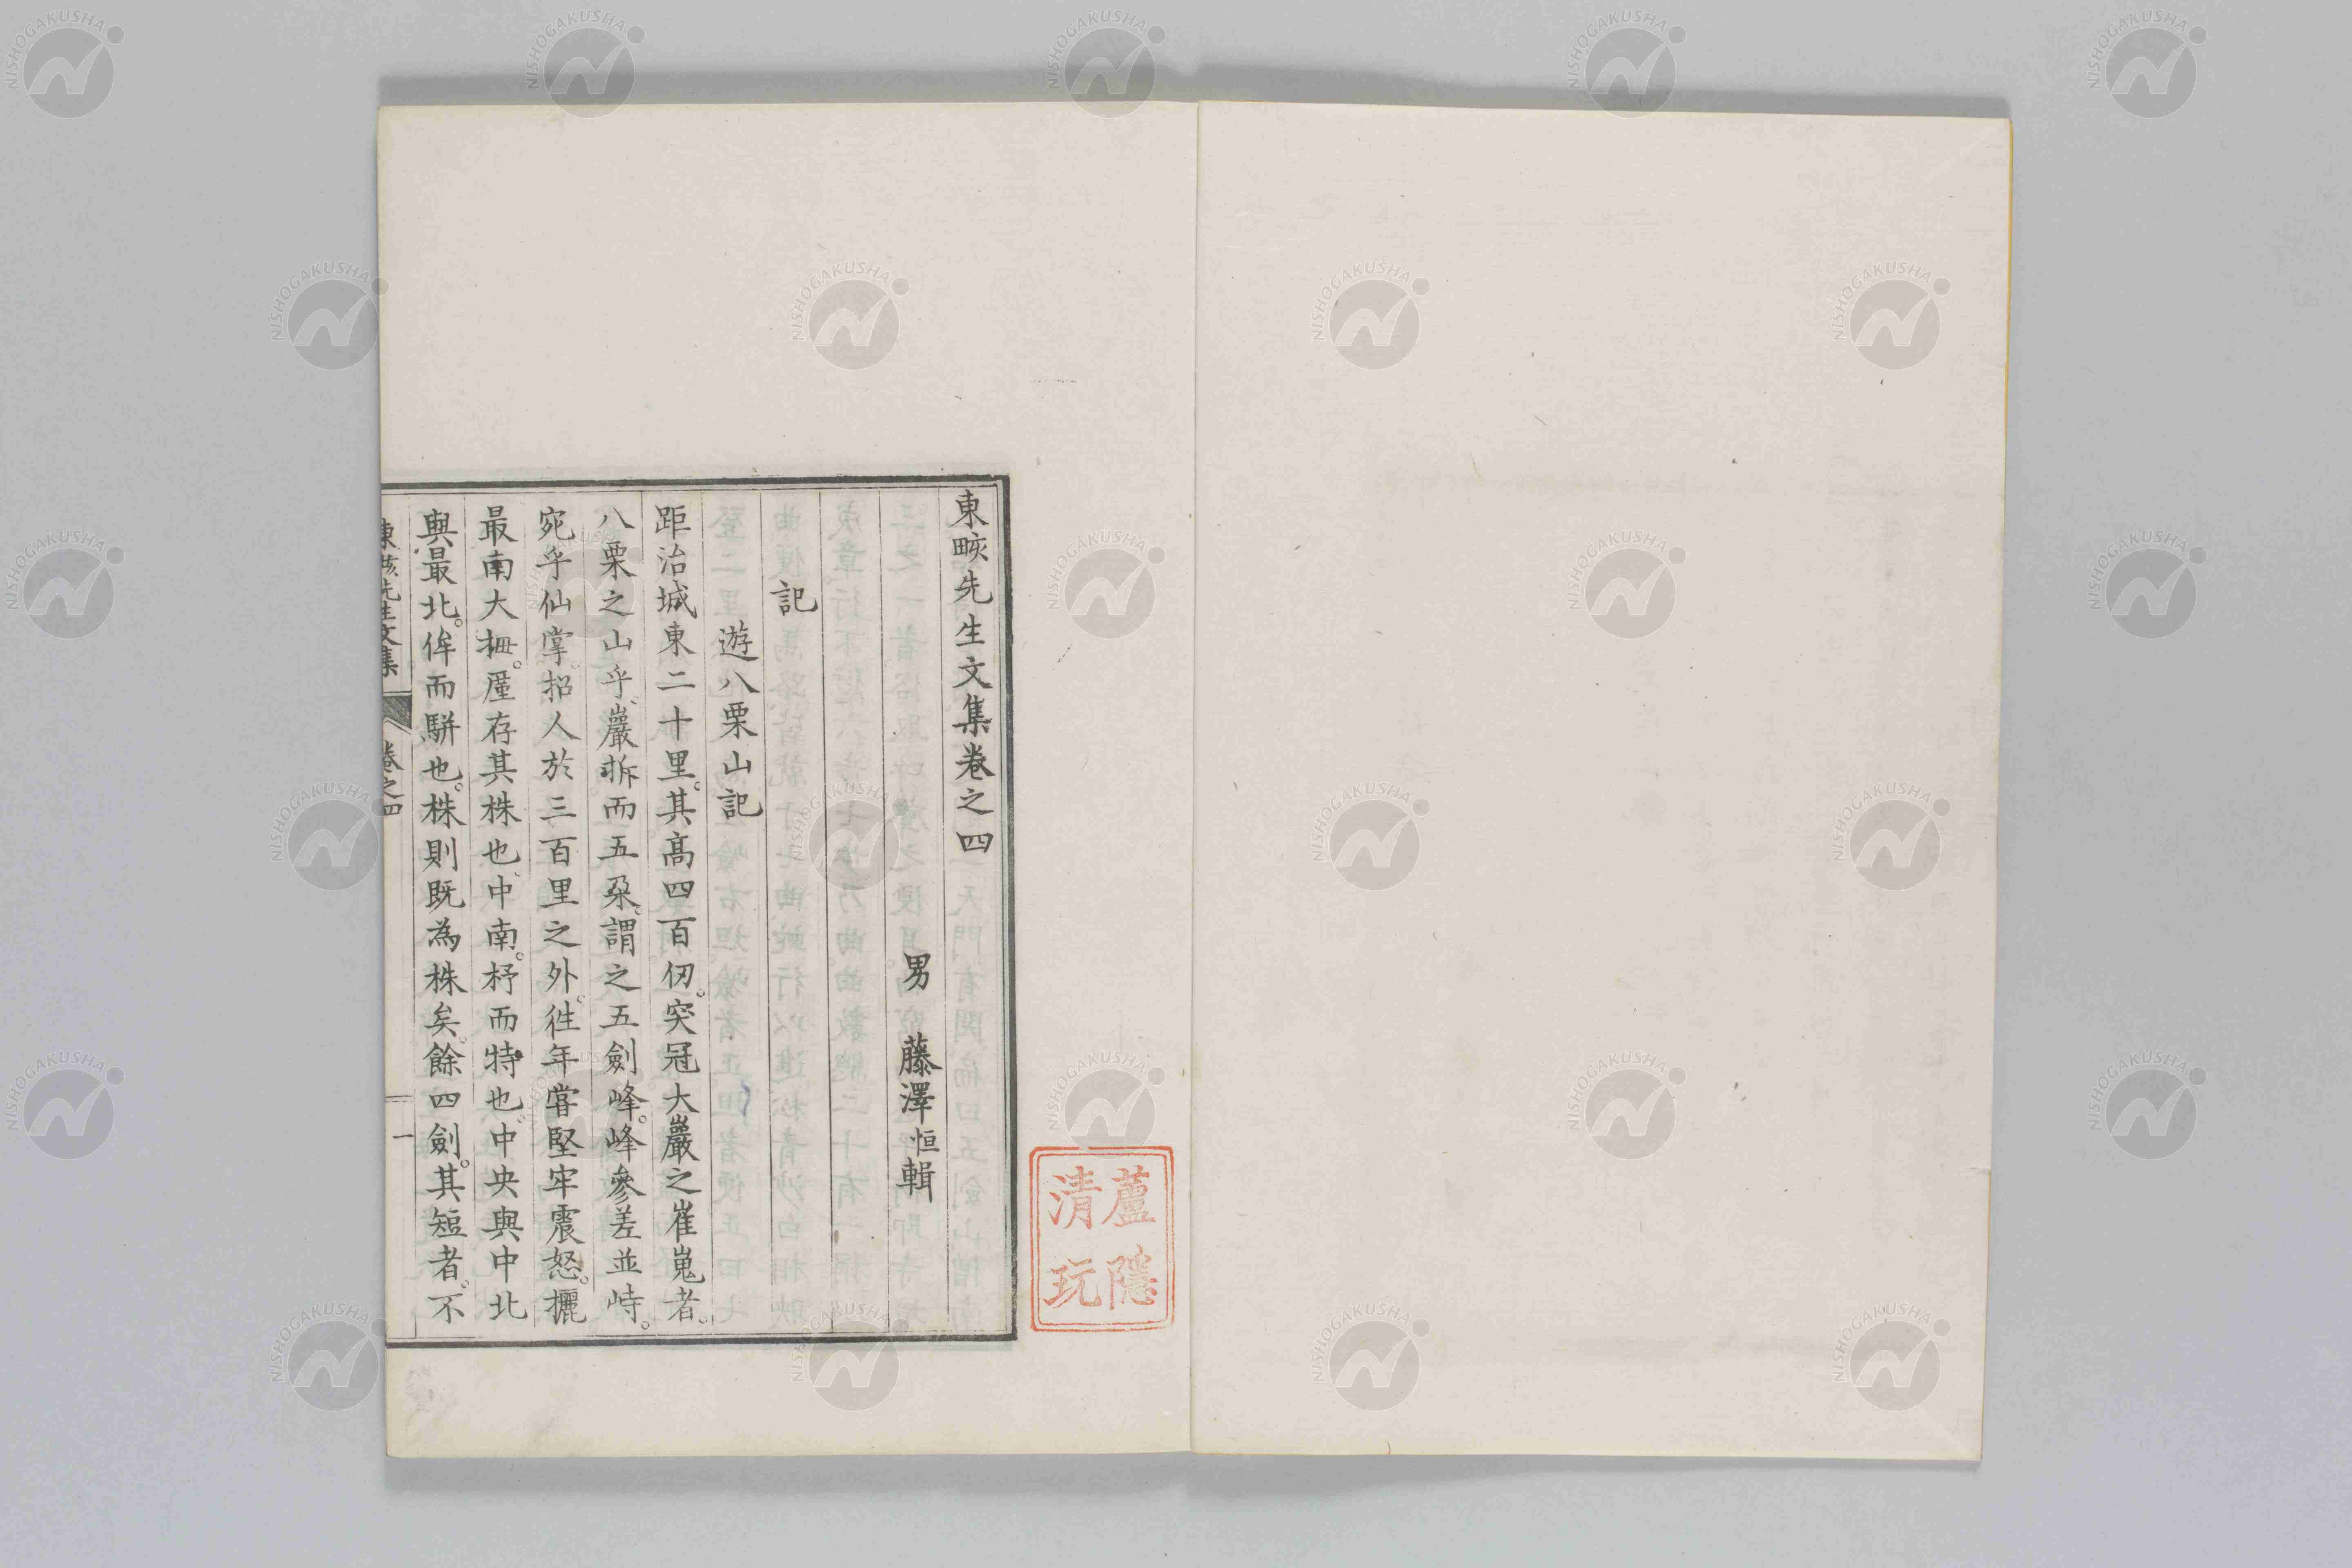 東畡先生文集卷之四
男 藤澤恒輯
記
遊八栗山記
距治城東二十里。其高四百仞。突冠大巖之崔嵬者。
八栗之山乎。巖拆而五朶。謂之五劍峰。峰參差並峙。
宛乎仙掌。招人於三百里之外。往年嘗堅牢震怒。攦
最南大拇。厪存其株也。中南。杼而特也。中央與中北
與最北。侔而駢也。株則既為株矣。餘四劍。其短者。不
東畡先生文集 卷之四 一
蘆隱
清玩
NISHOGAKUSHA